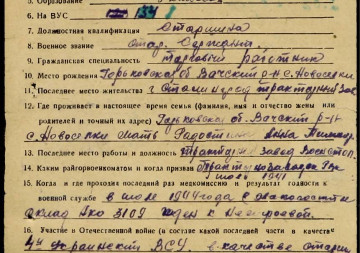 5. Образование
6. На ВУС № 134
7. Должностная квалификация Старшина
8. Военное звание Стар. Сержант
9. Гражданская специальность Торговый работник
10. Место рождения Горьковская об Вачский р-н с. Новоселки
11. Последнее место жительства г. Сталинград тракторный
12. Где проживает в настоящее время семья (фамилия, имя и отчество жены или
родителей и точный их адрес) Горьковская об. Вачский р-н
с. Новоселки мать Анна
13. Последнее место работы и должность Тракторн. завод
14. Каким райгорвоенкоматом и когда призван
1941
15. Когда и где проходил последний раз медкомиссию и результат годности к
военной службе в 1944 года с
3109 годен к нестроевой.
16. Участие в Отечественной войне (в составе какой последней части и в качестве
4й Украинский в качестве